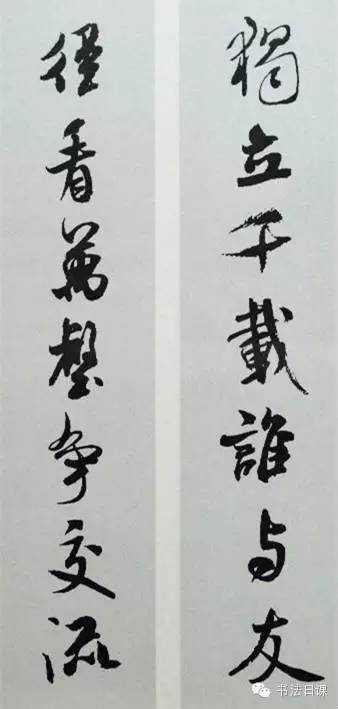 獨立千載誰与友
徑看萬壑争交流
书法日课